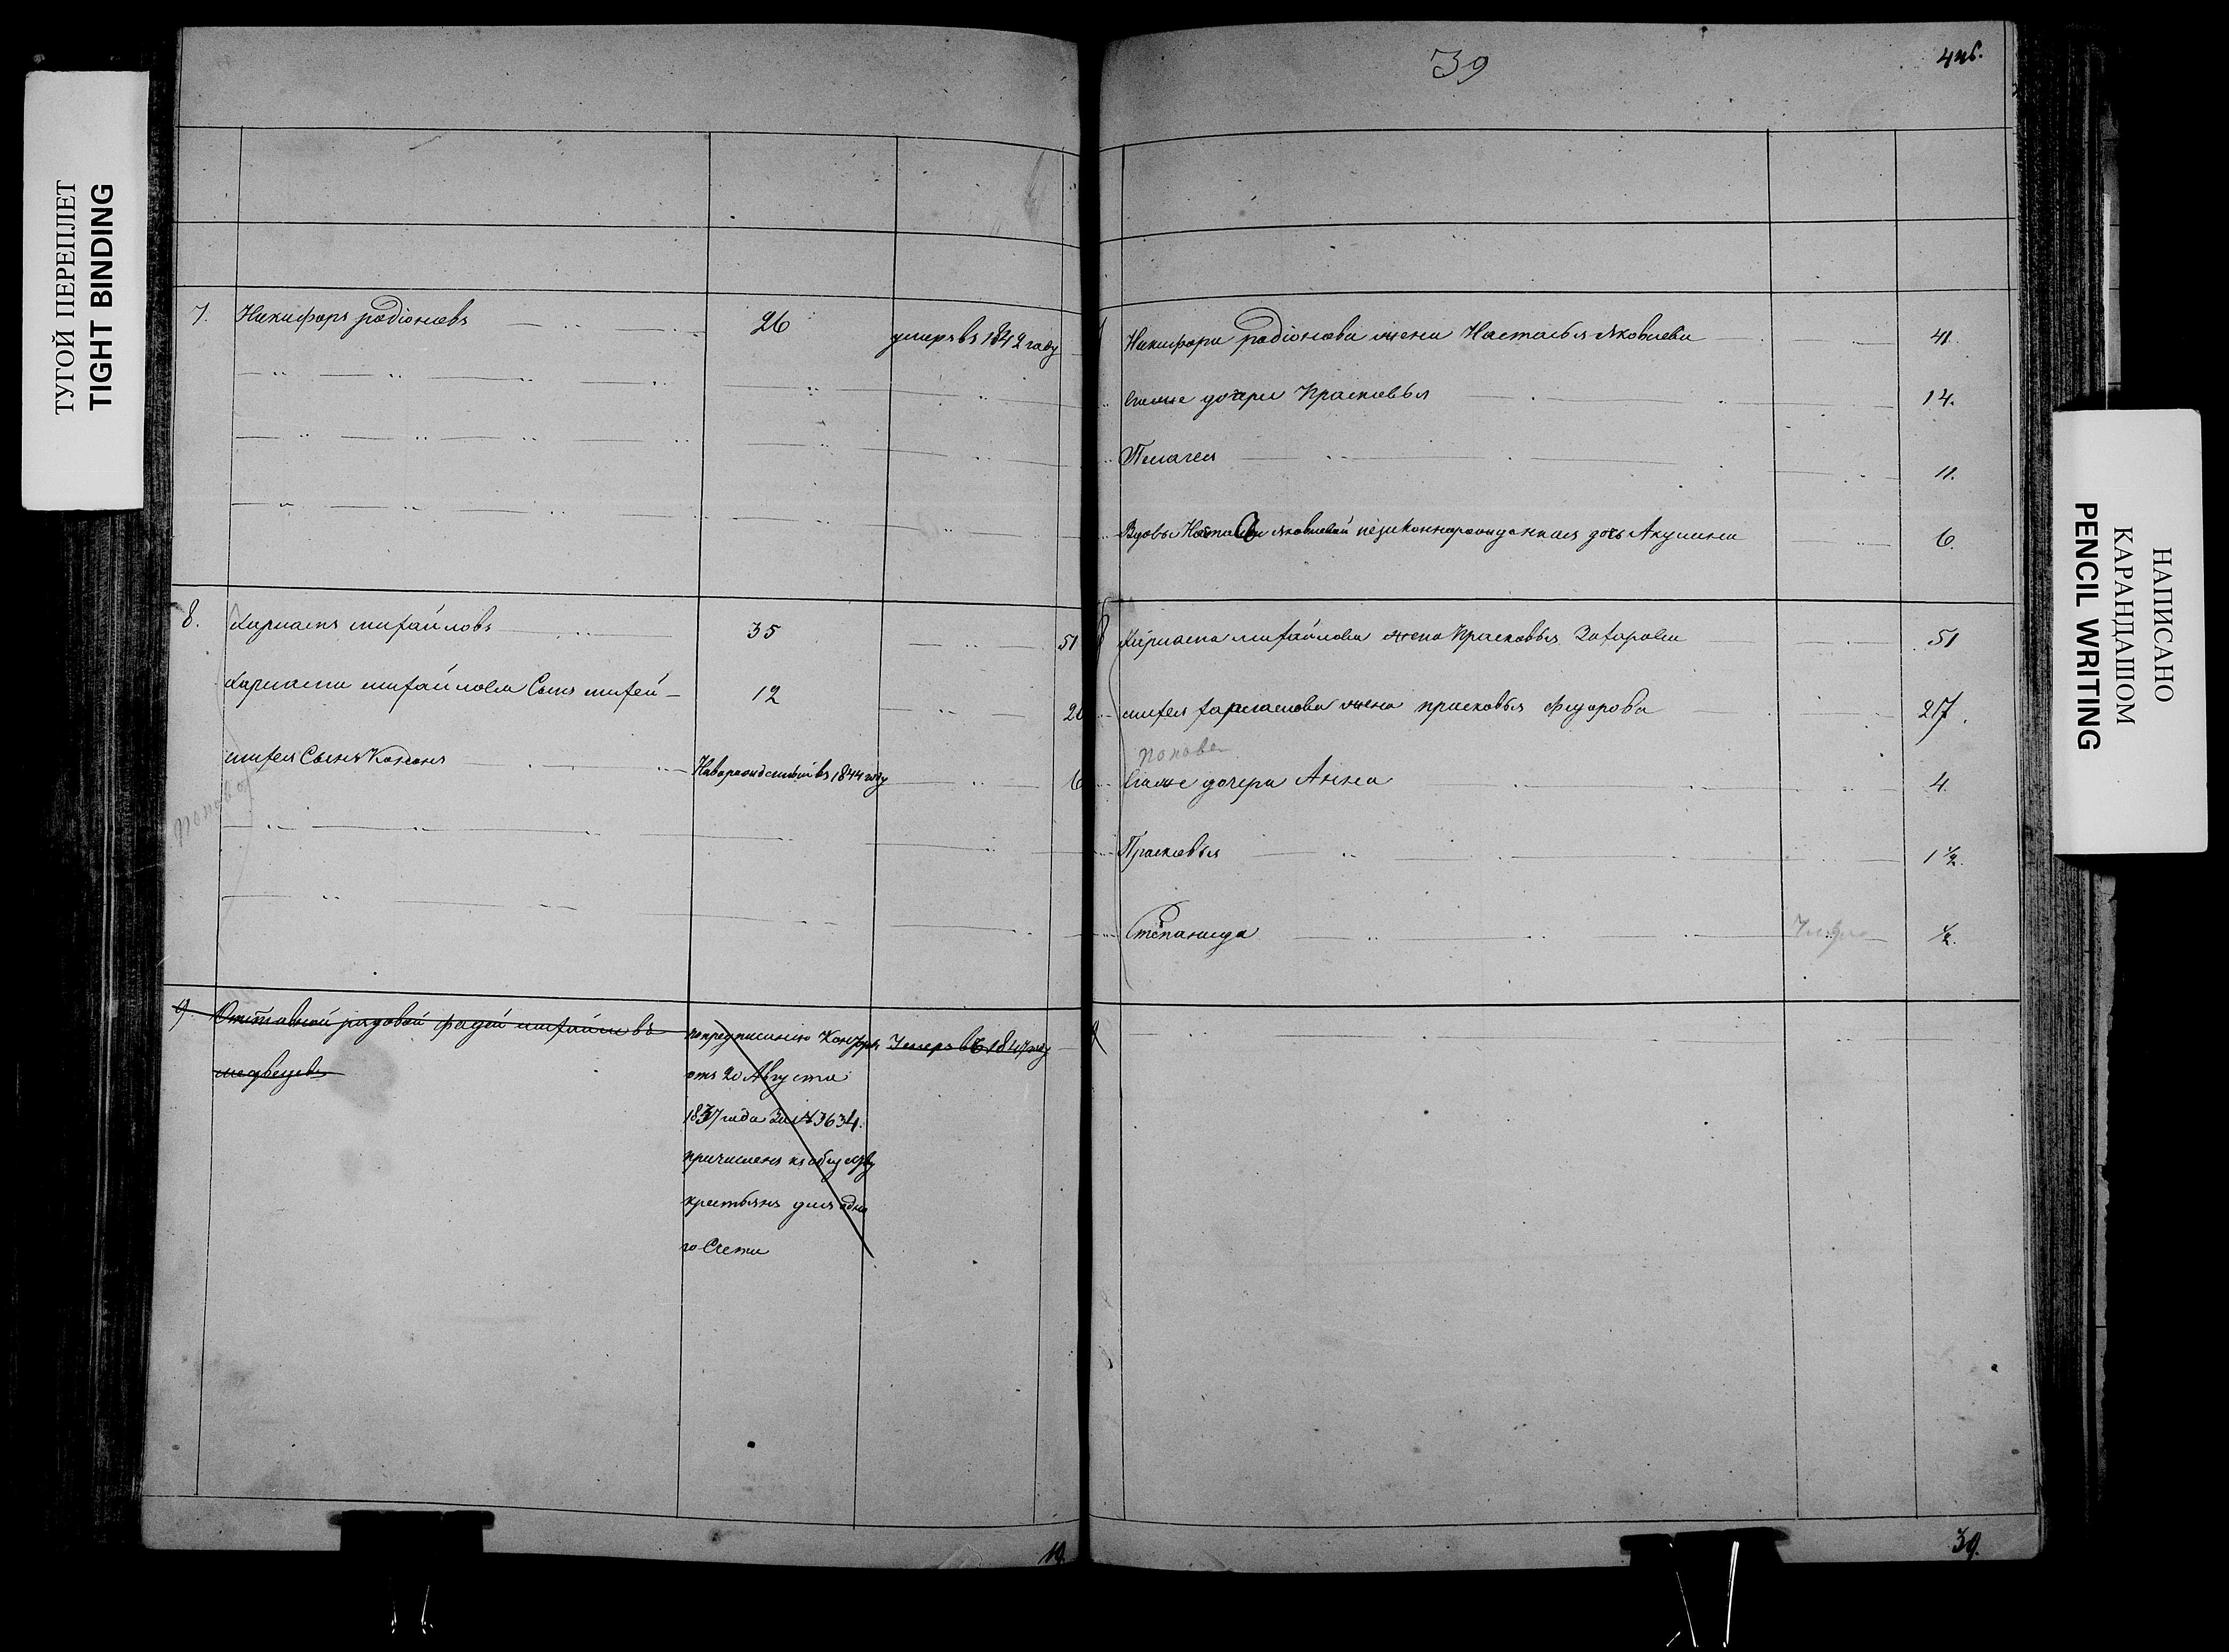 ТУГОЙ ПЕРЕПЛЕТ
TIGHT BINDING
7. Никифоръ родіоновъ 26 умеръ въ 1842 году
8. михайловъ 35 51
михайлова Сынъ михей 12
михея Сынъ Кононъ Новорожденный въ 1844 году 6
попова
9 Отставной рядовой фадей михайловъ попредписанію Умеръ въ 1847 году
медведевъ отъ 20 Августа
1837 года За № 3634.
причисленъ
крестьянъ для одно
го Счета
19.
39
Никифора родіонова жена Настасья Яковлева 41.
Ихже дочери Прасковья 14.
Пелагея 11.
Вдовы Настасьи яковлевой незаконнорожденная дочь Акулина 6.
михайлова жена Прасковья Захарова 51
михея жена прасковья Федорова 27.
попова
Ихже дочери Анна 4.
Прасковья 1 ½.
Степанида ½.
39.
НАПИСАНО
КАРАНДАШОМ
PENCIL WRITING